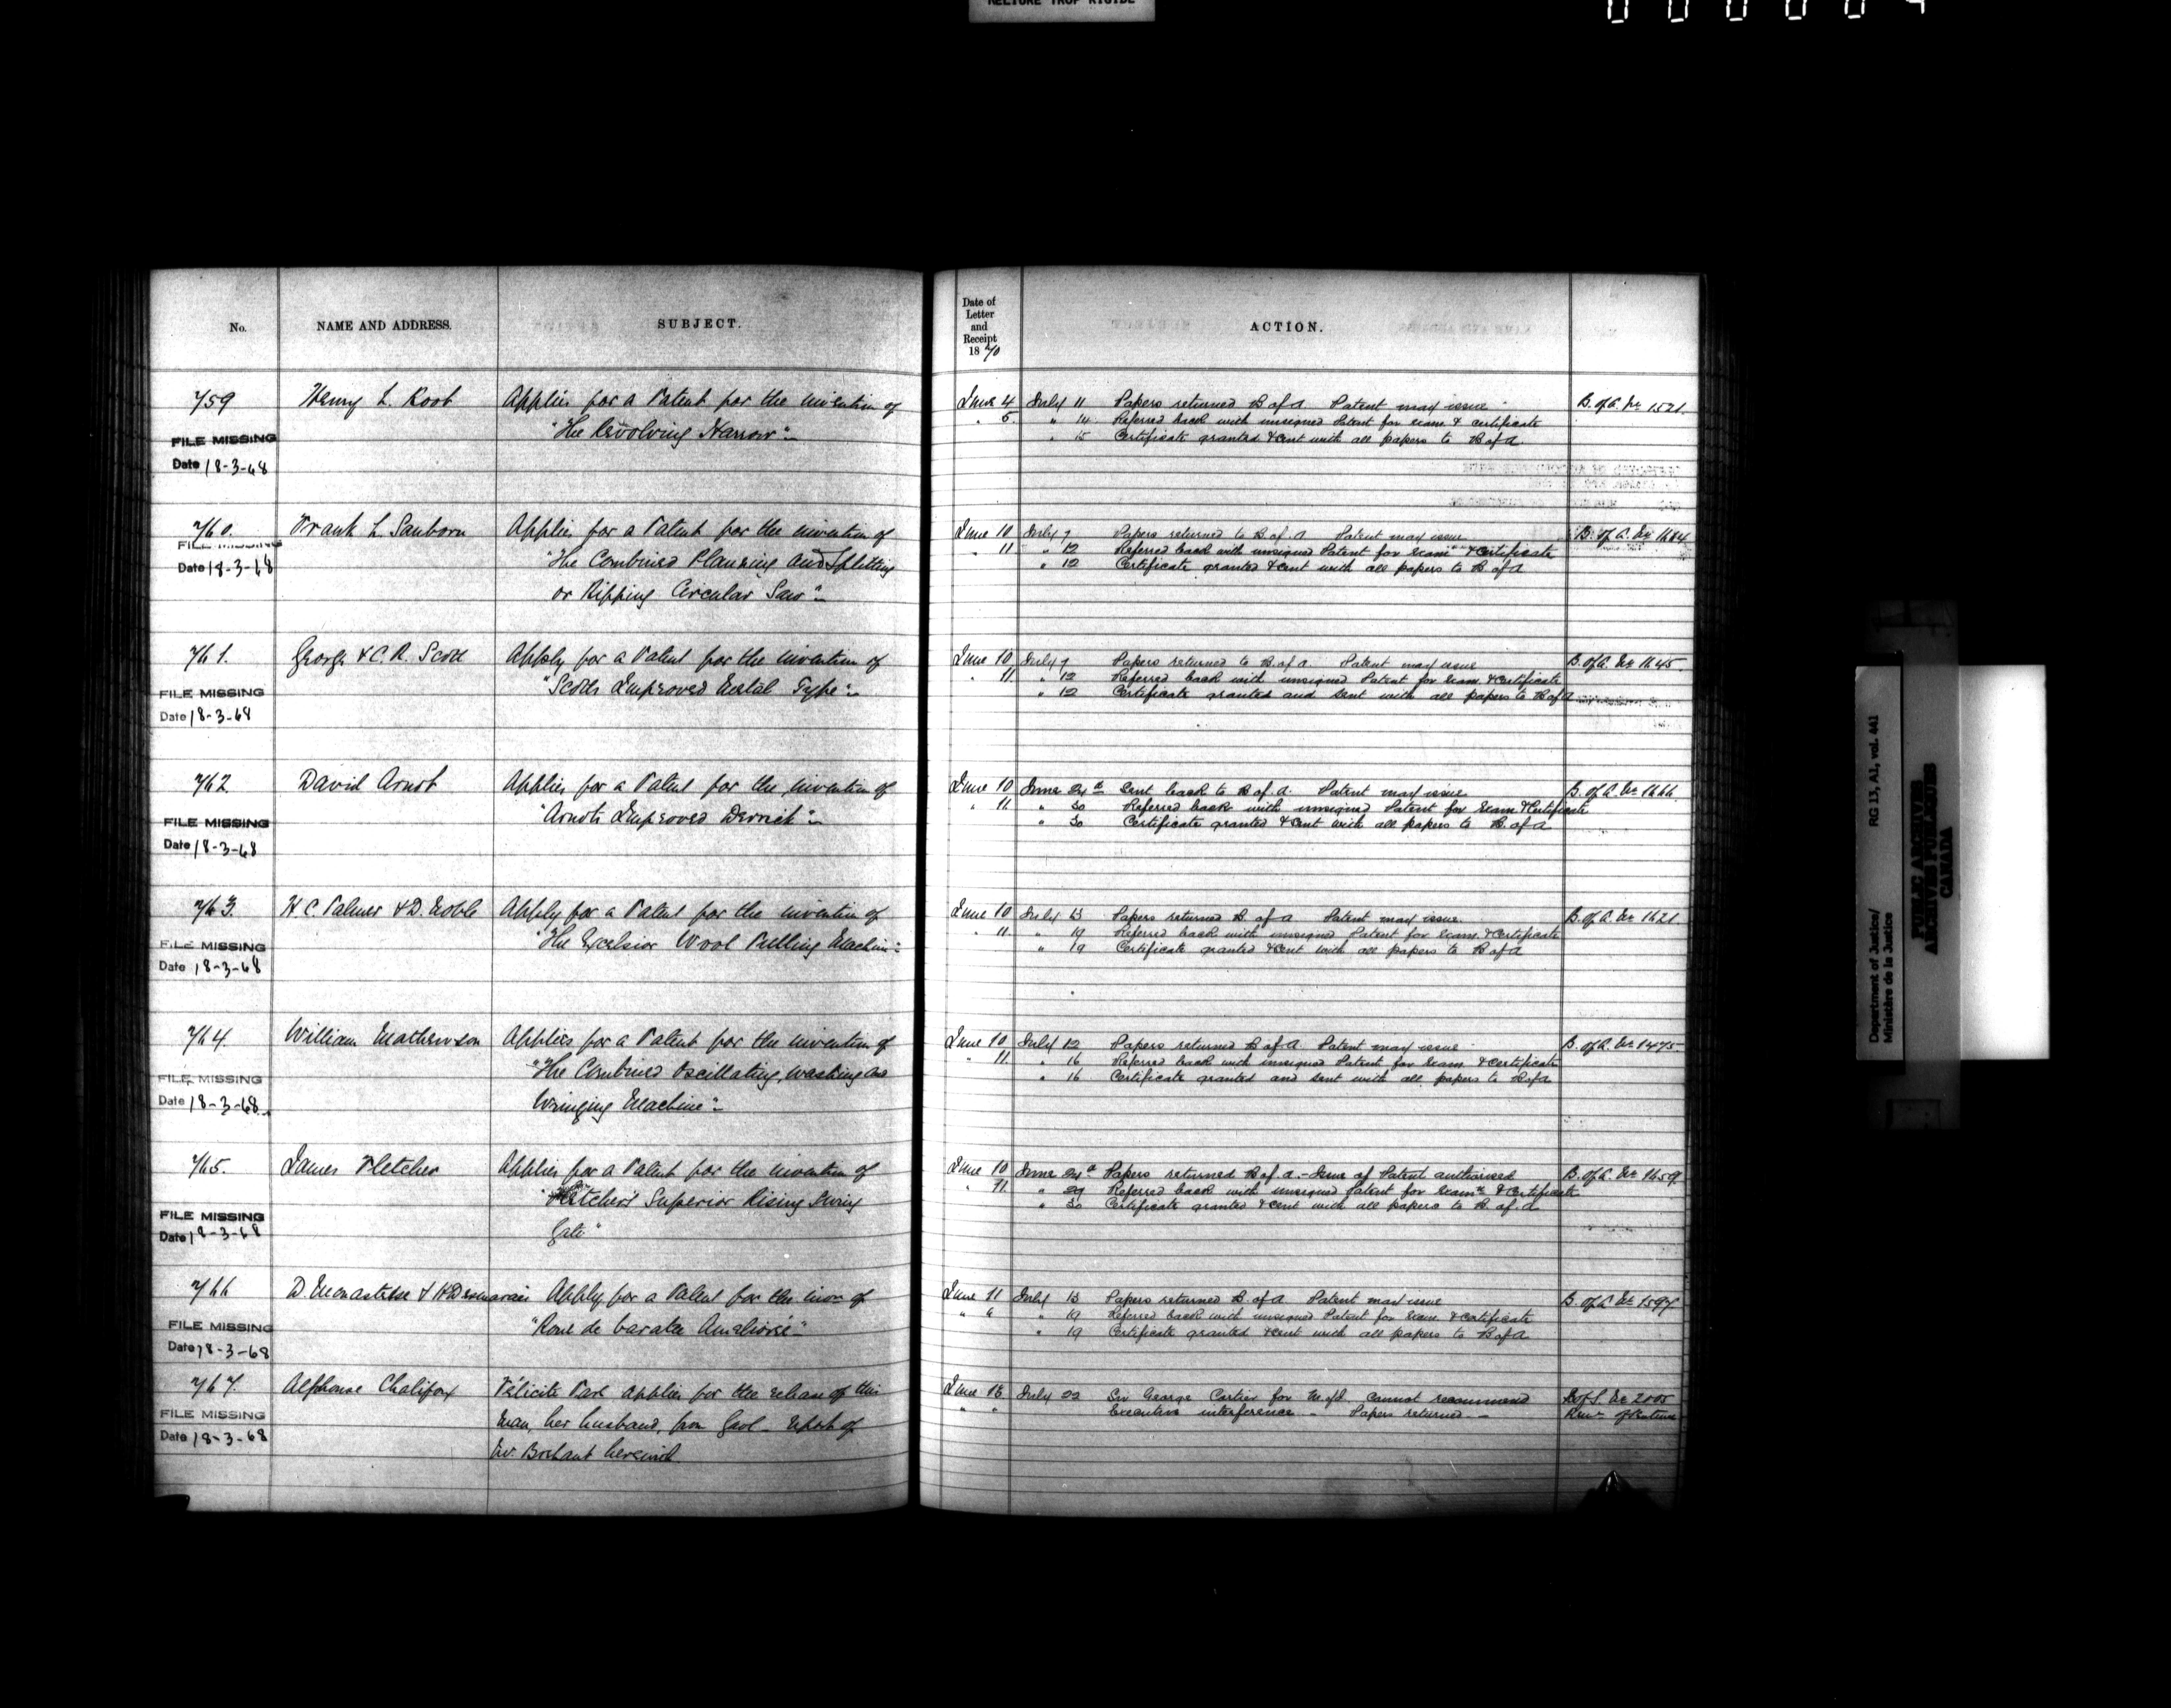 RELIURE TROP RIGIDE
No.
NAME AND ADDRESS.
SUBJECT.
759
Henry L. Root
Applies for a Patent for the invention of
"The Revolving Harrow"
FILE MISSING
Date 18-3-68
760.
Frank L. Sanborn
Applies for a Patent for the invention of
"The Combined Planning and Splitting
or Ripping Circular Saw"
FILE MISSING
Date 18-3-68
761.
George & C. R. Scott
Apply for a Patent for the invention of
"Scotts Improved Metal Type"
FILE MISSING
Date 18-3-68
762
David Arnot
Applies for a Patent for the invention of
"Arnots Improved Derrick"
FILE MISSING
Date 18-3-68
763.
H C. Palmer & D. Noble
Apply for a Patent for the invention of
"The Excelsior Wool Pulling Machine"
FILE MISSING
Date 18-3-68
764.
William Mathewson
Applies for a Patent for the invention of
"The Combined Oscillating, washing and
Wringing Machine"
FILE MISSING
Date 18-3-68
765.
James Fletcher
Applies for a Patent for the invention of
"Fletcher's Superior Rising Swing
Gate"
FILE MISSING
Date 18-3-68
766
D. & H
Apply for a Patent for the inv of
"Roue de Amelioré"
FILE MISSING
Date 18-3-68
767.
Alphonse Chalifoux
Félicité Paré applies for the release of this
man, her husband, from Gaol - Report of
Mr. herewith
FILE MISSING
Date 18-3-68
Date of
Letter
and
Receipt
1870
ACTION.
June 4 July 11 Papers returned B of A Patent may issue B. of A. No 1521.
" 5. " 14. Referred back with unsigned Patent for exam. & certificate
" 15 Certificate granted & sent with all papers to B of A
June 10 July 7 Papers returned to B. of A Patent may issue B. of A. No 1684
" 11 " 12 Referred back with unsigned Patent for exam & Certificate
" 12 Certificate granted & sent with all papers to B of A
June 10 July 7 Papers returned to B. of A Patent may issue B. of A. No 1645.
" 11. " 12 Referred back with unsigned Patent for exam. & Certificate
" 12 Certificate granted and sent with all papers to B of A
June 10 June 24 Sent back to B of A. Patent may issue B. of A. No 1666.
" 11. " 30 Referred back with unsigned Patent for exam & Certificate
" 30 Certificate granted & sent with all papers to B. of A
June 10 July 13 Papers returned B. of A Patent may issue. B. of A. No 1621.
" 11. " 19 Referred back with unsigned Patent for exam. & Certificate
" 19 Certificate granted & sent with all papers to B of A
June 10 July 12 Papers returned B of A. Patent may issue B. of A. No 1475.
" 11. " 16 Referred back with unsigned Patent for exam & Certificate
" 16 Certificate granted and sent with all papers to B of A
June 10 June 24 Papers returned B of A. - Issue of Patent authorised B. of A. No 1659.
" 11. " 29 Referred back with unsigned Patent for exam & Certificate
" 30 Certificate granted & sent with all papers to B. of A
June 11 July 13 Papers returned B. of A Patent may issue B. of A. No 1597
" " " 19 Referred back with unsigned Patent for exam. & certificate
" 19 Certificate granted & sent with all papers to B of A
June 13 July 22 Sir George Cartier for M of J. cannot recommend S. of S. No 2005
" " Executive interference - Papers returned -
Department of Justice/
Ministère de la Justice
RG 13, A1, vol. 441
PUBLIC ARCHIVES
ARCHIVES PUBLIQUES
CANADA